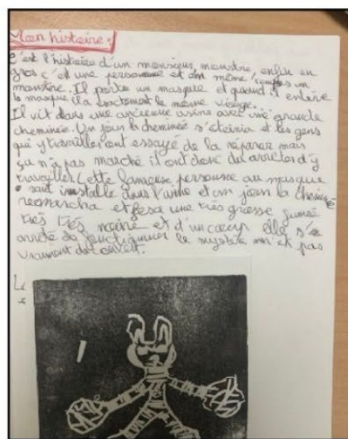 Mon histoire :
C'est l'histoire d'un monsieur, monstre, enfin en
gros c'est une personne et en même temps un
monstre. Il porte un masque et quand il enlève
le masque il a exactement le même visage.
Il vit dans une ancienne usine avec une grande
cheminée. Un jour la cheminée s'éteinia et les gens
qui y travaillent ont essayé de la réparer mais
ça n'a pas marché il ont donc de
travailler. Cette fameuse personne au masque
s'est installé dans l'usine et un jour la cheminé
remarcha et fesa une très grosse fumée
très très noire et d'un coup elle s'a
arrete de fonctionner le mystère n'et pas
vraiment découvert.